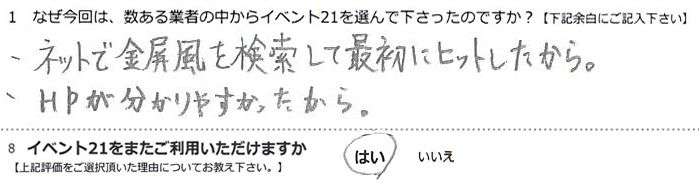 1 なぜ今回は、数ある業者の中からイベント21を選んで下さったのですか？【下記余白にご記入下さい】
、ネットで金屏風を検索して最初にヒットしたから。
、HPが分かりやすかったから。
8 イベント21をまたご利用いただけますか
【上記評価をご選択頂いた理由についてお教え下さい。】
はい いいえ